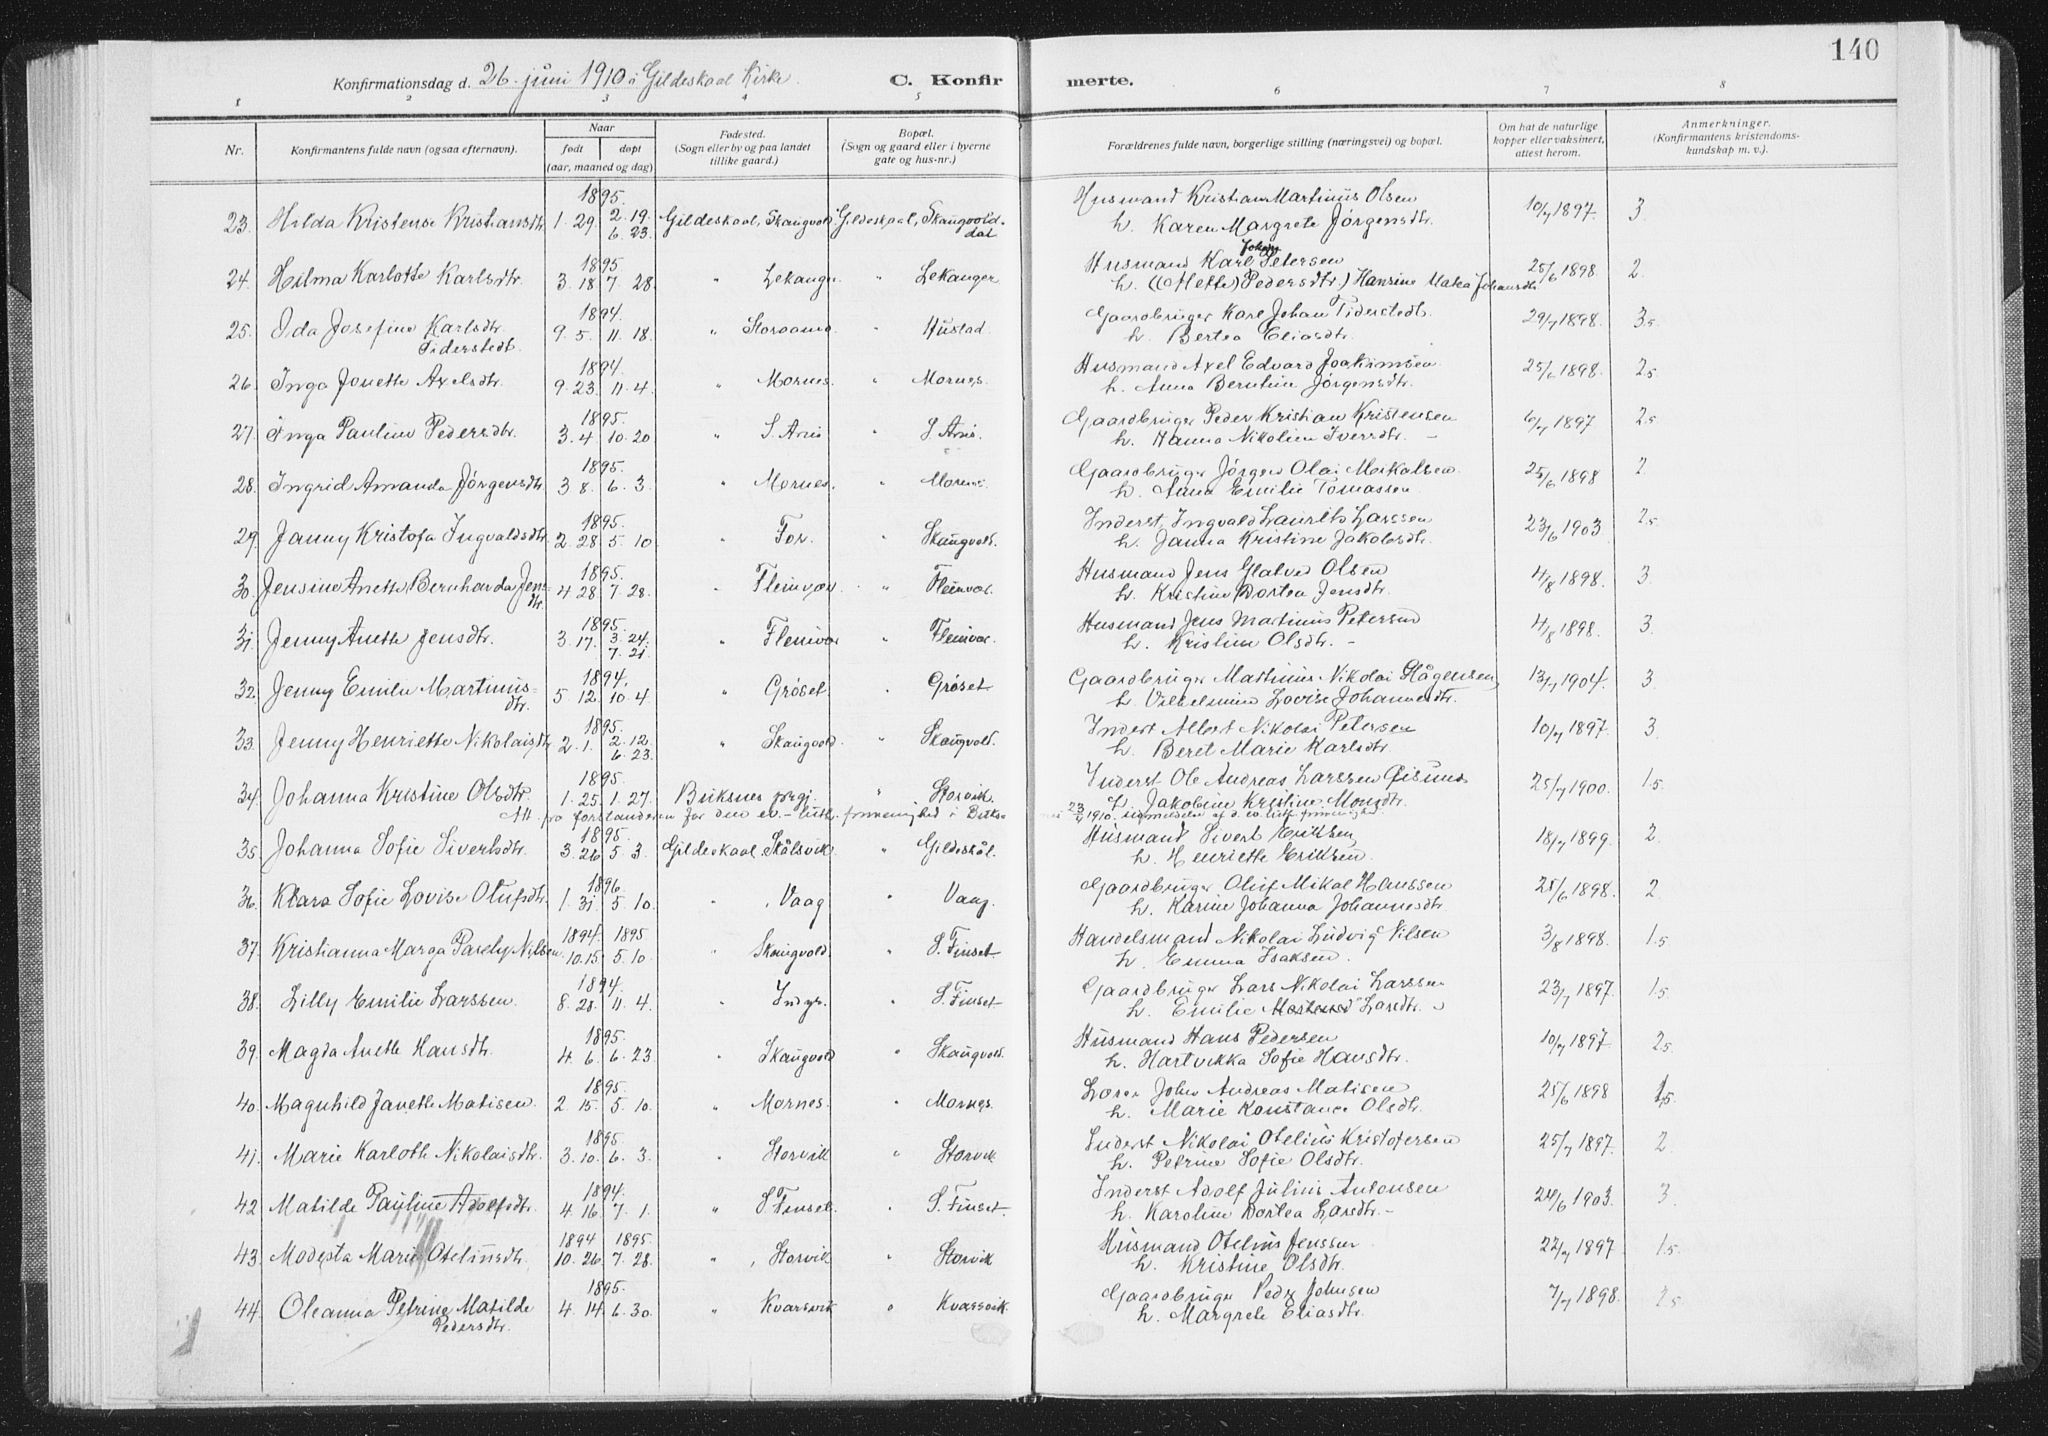 140
Konfirmationsdag d. 26. juni 1910 i Gildeskaal Kirke. C. Konfirmerte.
1 2 3 4 5 6 7 8
Nr. Konfirmantens fulde navn (ogsaa efternavn). Naar født døpt (aar, maaned og dag) Fødested. (Sogn eller by og paa landet tillike gaard.) Bopæl. (Sogn og gaard eller i byerne gate og hus-nr.) Forældrenes fulde navn, borgerlige stilling (næringsvei) og bopæl. Om hat de naturlige kopper eller vaksinert, attest herom. Anmerkninger. (Konfirmantens kristendomskundskap m. v.).
1895.
23. Hilda Kristense Kristiansdtr. 1. 29. 2. 19. 6. 23. Gildeskaal, Skaugvold Gildeskaal, Skaugvolddal Husmand Kristian Martinus Olsen h. Karen Margrete Jørgensdtr. 10/7 1897. 3
1895
24. Hilma Karlotte Karlsdtr. 3. 18 7. 28. " Lekanger. " Lekanger Husmand Karl Johan Petersen h. (Mette) Pedersdtr.) Hansine Johansdtr 25/6 1898. 2.
1894.
25. Ida Josefine Karlsdtr. Tiderstedt. 9. 5. 11. 18. " " Hustad. Gaardbruger Karl Johan Tiderstedt. h. Bertea Eliasdtr. 29/7 1898. 3.5
1894.
26. Inga Jonette Axelsdtr. 9. 23. 11. 4. " Mornes. " Mornes. Husmand Axel Edvard Joakimsen h. Anna Berntine Jørgensdtr. 25/6 1898. 2.5
1895.
27. Inga Pauline Pedersdtr. 3. 4. 10. 20 " S. Arnes " S. Arnes. Gaardbruger Peder Kristian Kristensen h. Hanna Nikoline Iversdtr. – 6/7 1897 2.5
1895.
28. Ingrid Amanda Jørgensdtr. 3 8. 6. 3. " Mornes. " Mornes. Gaardbruger Jørgen Olai Mikalsen. h. Anna Emilie Tomassen 25/6 1898 2.
1895.
29. Janny Kristofa Ingvaldsdtr. 2. 28. 5. 10. " For. " Skaugvold. Inderst, Ingvald Laurits Larssen h. Janna Kristine Jakobsdtr. 23/6 1903 2.5
1895.
30. Jensine Anette Bernharda Jensdtr. 4 28. 7. 28. " Fleinvær. " Fleinvær. Husmand Jens Glatved Olsen h. Kristine Dortea Jensdtr. 4/8 1898. 3.
1895.
31. Jenny Anette Jensdtr. 3. 17. 3. 24. 7. 21. " Fleinvær " Fleinvær. Husmand Jens Martinus Petersen h. Kristine Olsdtr. – 4/8 1898. 3.
1894.
32. Jenny Emilie Martinusdtr. 5 12. 10. 4. " Grøset. " Grøset Gaardbruger Martinus Nikolai Hågensen, h. Vilhelmine Lovise Johannesdtr. 13/7 1904. 3
1895.
33. Jenny Henriette Nikolaisdtr. 2. 1. 2. 12. 6. 23. " Skaugvold. " Skaugvold. Inderst Albert Nikolai Petersen h. Beret Marie Karlsdtr. 10/7 1897. 3.
1895.
34. Johanna Kristine Olsdtr. 1. 25. 1. 27. Buksnes prgj. " Storvik. Inderst Ole Andreas Larssen Øisund h. Jakobine Kristine Monsdtr. 25/7 1900. 1.5
Att. fra forstanderen for den ev.-luth. frimenighed i Buks- 23/4 1910. af d. ev. luth. frimenighed.
1895.
35. Johanna Sofie Sivertsdtr. 3. 26 5. 3. Gildeskaal, Skålsvik. " Gildeskål. Husmand Sivert Eriksen, h. Henriette Eriksen. 18/7 1899. 2.
1896.
36. Klara Sofie Lovise Olufsdtr. 1. 31. 5. 10. " Vaag " Vaag. Gaardbruger Oluf Mikal Hanssen h. Karine Johanna Johannesdtr. 25/6 1898. 2
1894. 1895
37. Kristianna Marga Nilsen. 10.15. 5.10 " Skaugvold. " S. Finset. Handelsmand Nikolai Ludvig Nilsen h. Emma Isaksen. 3/8 1898. 1.5
1894.
38. Lilly Emilie Larssen. 8. 28. 11. 4. " Indyr. " S. Finset. Gaardbruger Lars Nikolai Larssen h. Emilie Larsdtr. 23/7 1897. 1.5
1895.
39. Magda Anette Hansdtr. 4 6. 6. 23. " Skaugvold " Skaugvold. Husmand Hans Pedersen h. Hartvikka Sofie Hansdtr. 10/7 1897. 2.5
1895.
40. Magnhild Janette Matisen. 2 15. 5. 10. " Mornes. " Mornes. Lærer John Andreas Matisen h. Marie Konstance Olsdtr. 25/6 1898 1.5
1895.
41. Marie Karlotte Nikolaisdtr. 3. 10. 6. 3. " Storvik " Storvik Inderst Nikolai Otelius Kristofersen h. Petrine Sofie Olsdtr. 25/7 1897. 2
1894.
42. Matilde Pauline Adolfsdtr. 4. 16. 7. 1. " S. Finset. " S. Finset. Inderst Adolf Julius Antonsen h. Karoline Dortea Larsdtr. – 24/6 1903. 3.
1894 1895.
43. Modesta Marie Oteliusdtr. 10. 26 7. 28. " Storvik " Storvik Husmand Otelius Jenssen h. Kristine Olsdtr. 22/7 1897. 1.5
1895.
44. Oleanna Petrine Matilde Pedersdtr. 4. 14 6. 30. " Kvarsvik " Kvarsvik Gaardbruger Peder Johnsen h. Margrete Eliasdtr. 7/7 1898. 2.5